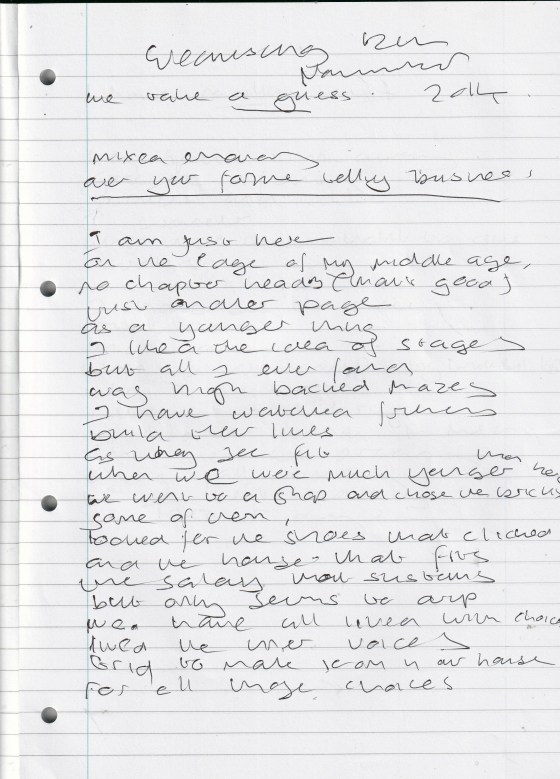 Wednesday 12th
November
we take a guess. 2014
mixed
over your fortune telling business,
I am just here
on the edge of my middle age,
no chapter heads (that's good)
just another page
as a younger thing
I liked the idea of stages
but all I ever found
was high backed mazes
I have watched friends
build their lives
as they see fit
when we were much younger than
we went to a shop and chose the bricks
some of them,
looked for the shoes that clicked
and the house that fits
the salary that sustains
but only seems to drip
we have all lived with choice
lived the inner voices
to make room in our house
for all those choices